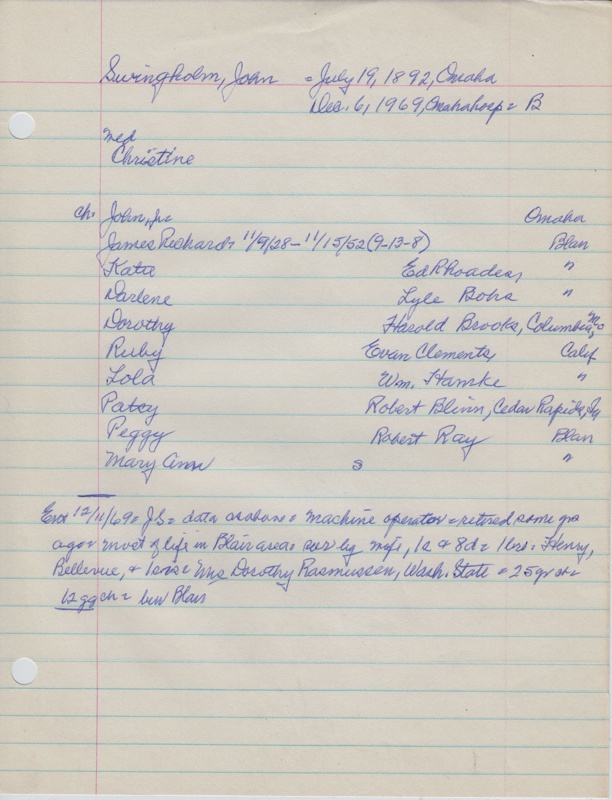 Swingholm, John = July 19, 1892, Omaha
Dec. 6, 1969, Omaha hosp = B
med
Christine
ch: John, Jr = Omaha
James Richard = 11/9/28 - 11/15/52 (9-13-8) Blair
Katie Ed Rhoades, "
Darlene Lyle Bohs "
Dorothy Harold Brooks, Columbia, Mo
Ruby Evan Clements, Calif
Lola Wm. Hamke "
Patsy Robert Blinn, Cedar Rapids, Ia
Peggy Robert Ray Blair
Mary Ann s "
Ent 12/11/69 = JS = data as above = machine operator = retired some yrs
ago = most of life in Blair area = sur by wife, 1s & 8d = 1bro = Henry,
Bellevue, & 1sis = Mrs Dorothy Rasmussen, Wash. State = 25 gr ch =
12 gg ch = bur Blair